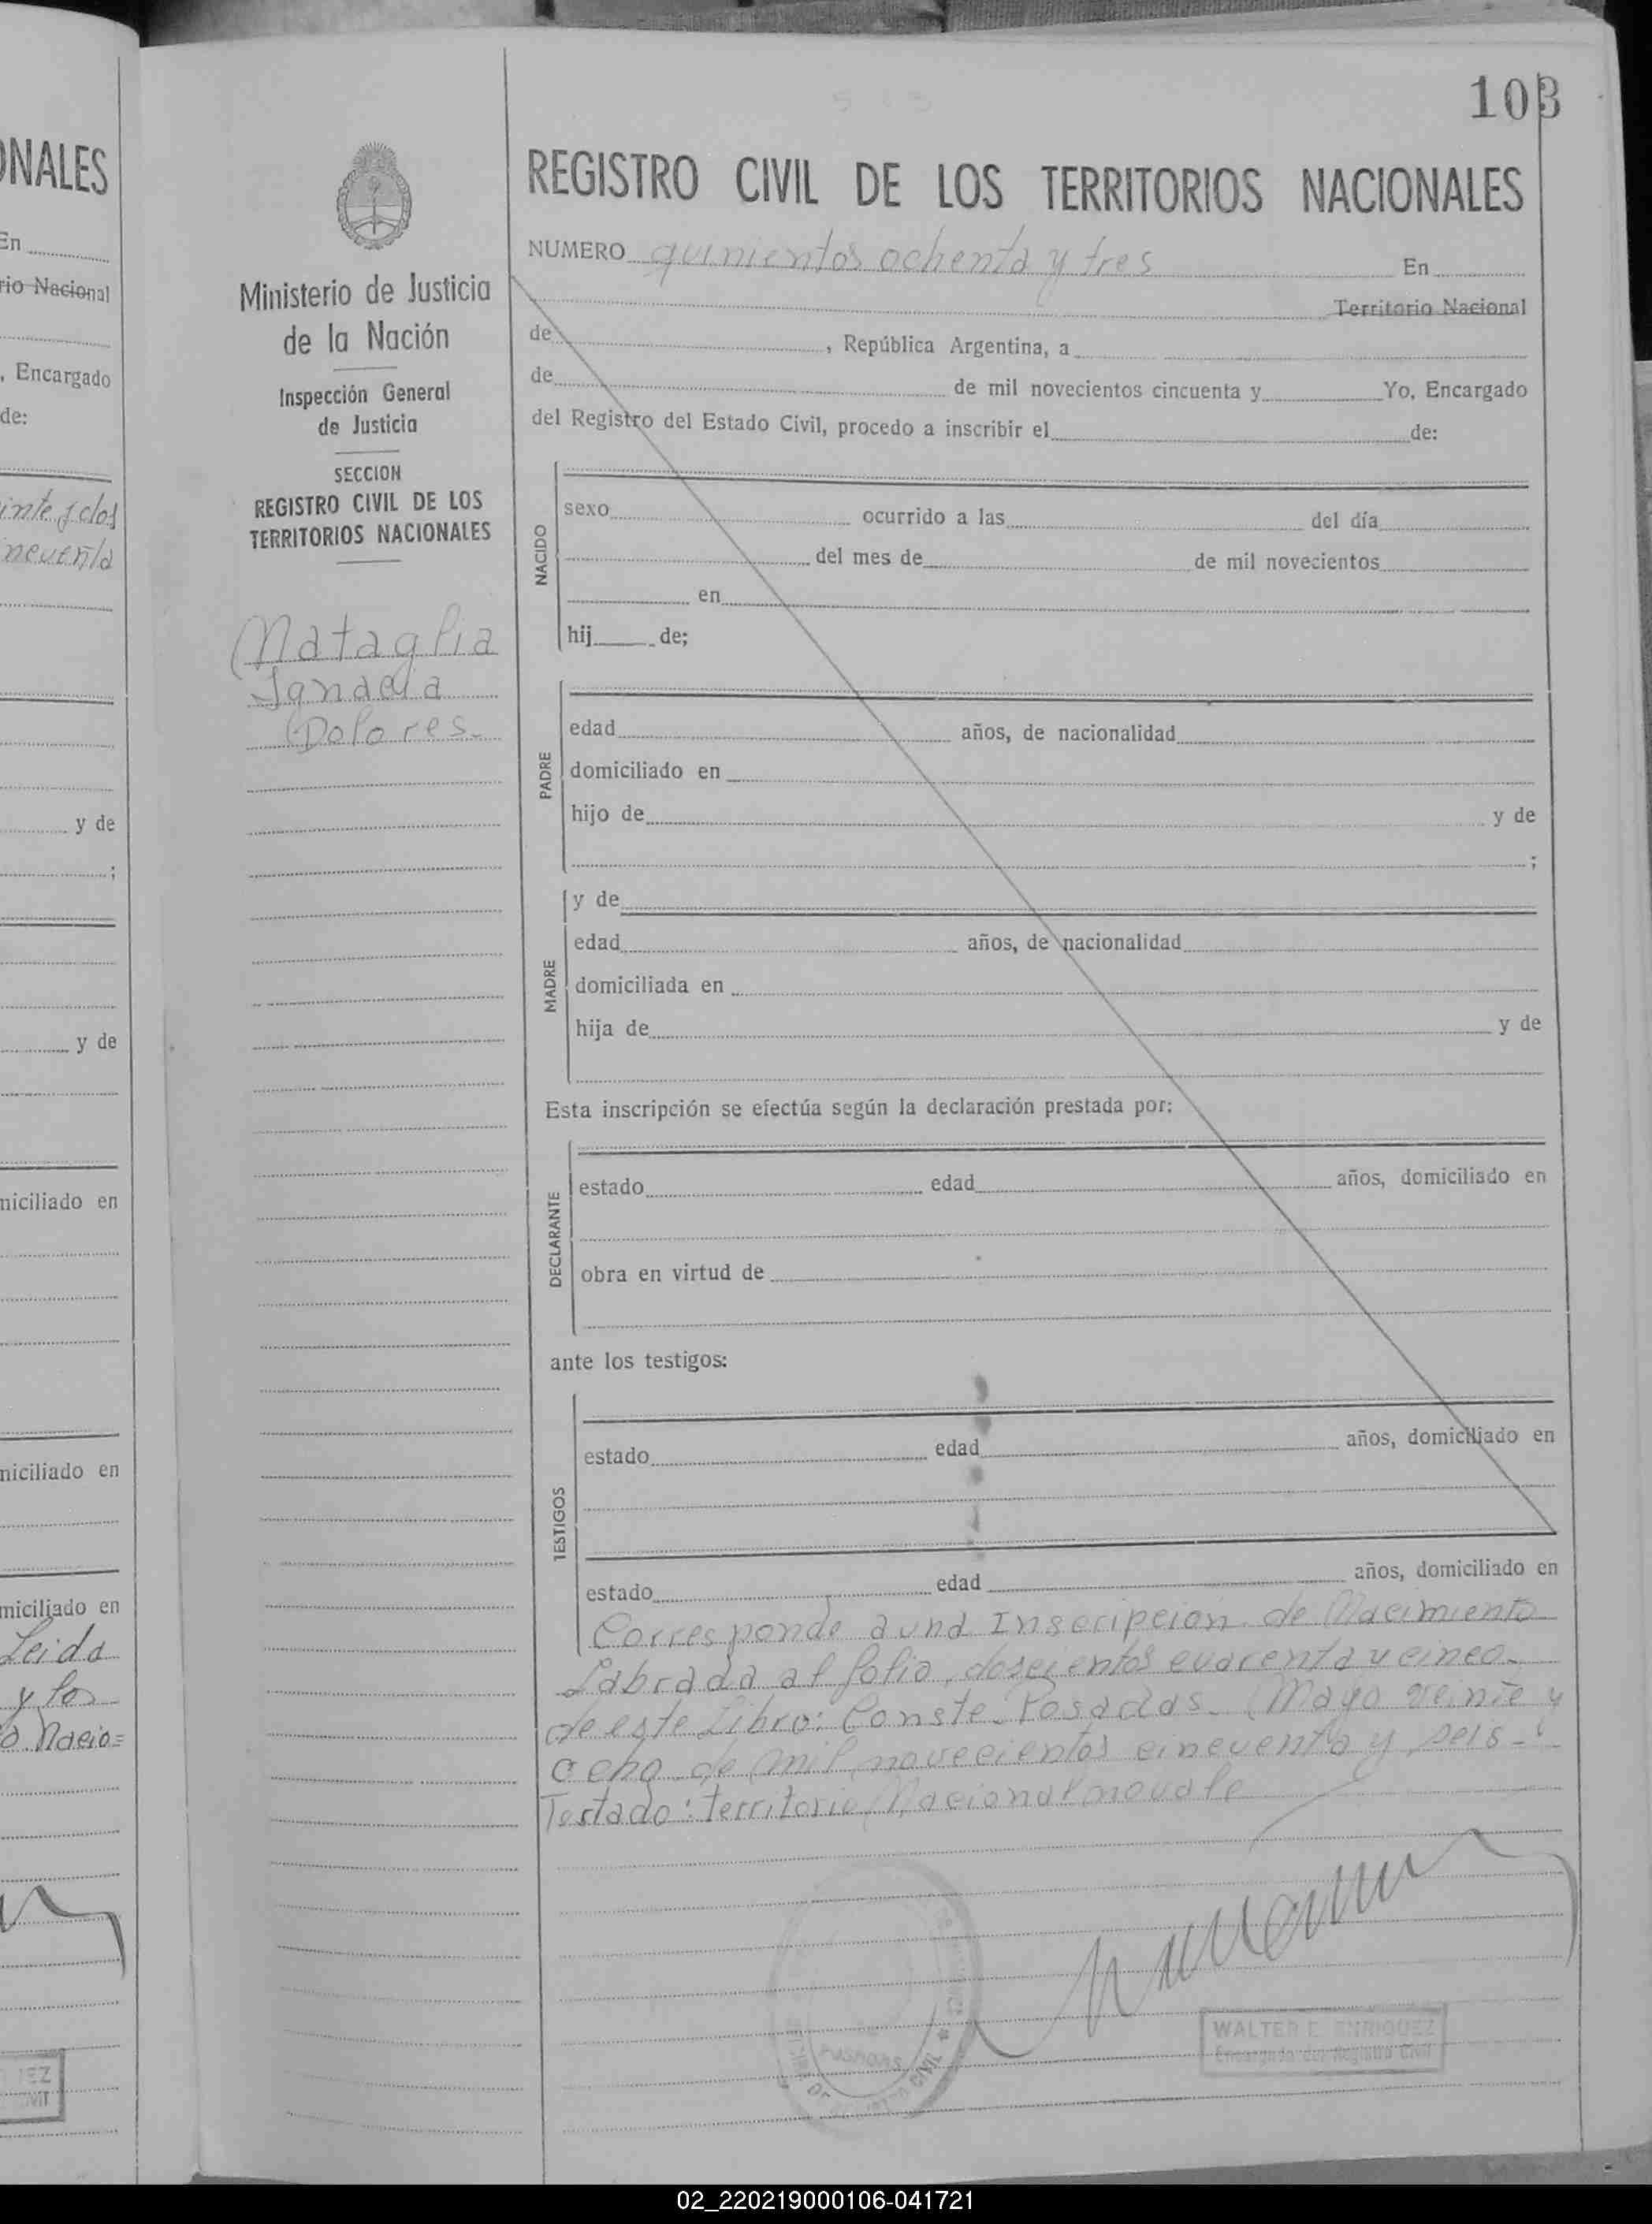 103
ONALES
En
rio Nacional
, Encargado
de:
inte y dos
ncuenta
y de
;
y de
miciliado en
niciliado en
miciliado en
Leida
y los
o. Nacio=
EZ
Ministerio de Justicia
de la Nación
Inspección General
de Justicia
SECCION
REGISTRO CIVIL DE LOS
TERRITORIOS NACIONALES
Mataglia
Ignacia
Dolores.-
REGISTRO CIVIL DE LOS TERRITORIOS NACIONALES
NUMERO quinientos ochenta y tres En
Territorio Nacional
de , República Argentina, a
de de mil novecientos cincuenta y Yo, Encargado
del Registro del Estado Civil, procedo a inscribir el de:
NACIDO
sexo ocurrido a las del día
del mes de de mil novecientos
en
hij de;
PADRE
edad años, de nacionalidad
domiciliado en
hijo de y de
;
MADRE
y de
edad años, de nacionalidad
domiciliada en
hija de y de
Esta inscripción se efectúa según la declaración prestada por:
DECLARANTE
estado edad años, domiciliado en
obra en virtud de
ante los testigos:
TESTIGOS
estado edad años, domiciliado en
estado edad años, domiciliado en
Corresponde a una Inscripcion de Nacimiento
Labrada al folio, doscientos cuarenta y cinco.
de este Libro: Conste. Posadas. Mayo veinte y
ocho de mil novecientos cincuenta y seis.-
Testado: territorio Nacional no vale
POSADAS
CIVIL
WALTER E. ENRIQUEZ
Encargado del Registro Civil
02_220219000106-041721